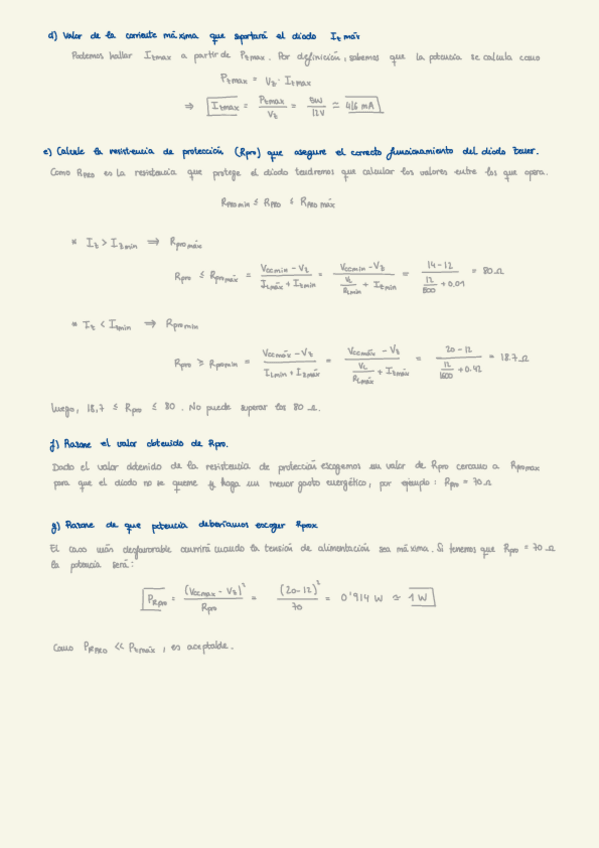 d) Valor de la corriente máxima que soportará el diodo Iz máx
Podemos hallar Izmax a partir de Pzmax. Por definición, sabemos que la potencia se calcula como
Pzmax = Vz · Izmax
⇒ Izmax = Pzmax / Vz = 5W / 12V ≃ 416 mA
e) Calcule la resistencia de protección (Rpro) que asegure el correcto funcionamiento del diodo Zener.
Como RPRO es la resistencia que protege el diodo tendremos que calcular los valores entre los que opera.
RPRO min ≤ RPRO ≤ RPRO máx
* Iz > Izmin ⇒ Rpro máx
Rpro ≤ Rpro máx = (Vcc min - Vz) / (ILmáx + Iz min) = (Vcc min - Vz) / (VL / RLmin + Iz min) = (14 - 12) / (12 / 800 + 0.01) = 80 Ω
* Iz < Izmin ⇒ Rpro min
Rpro ≥ Rpro min = (Vcc máx - Vz) / (ILmin + Iz máx) = (Vcc máx - Vz) / (VL / RLmáx + Iz máx) = (20 - 12) / (12 / 1600 + 0.42) = 18.7 Ω
Luego, 18,7 ≤ Rpro ≤ 80. No puede superar los 80 Ω.
f) Razone el valor obtenido de Rpro.
Dado el valor obtenido de la resistencia de protección escogemos un valor de Rpro cercano a Rpro max
para que el diodo no se queme y haga un menor gasto energético, por ejemplo: Rpro = 70 Ω
g) Razone de que potencia deberíamos escoger Rpro
El caso más desfavorable ocurrirá cuando la tensión de alimentación sea máxima. Si tenemos que Rpro = 70 Ω
la potencia será:
PRpro = (Vcc max - Vz)² / Rpro = (20 - 12)² / 70 = 0'914 W ≃ 1 W
Como PRPRO << Pz máx, es aceptable.